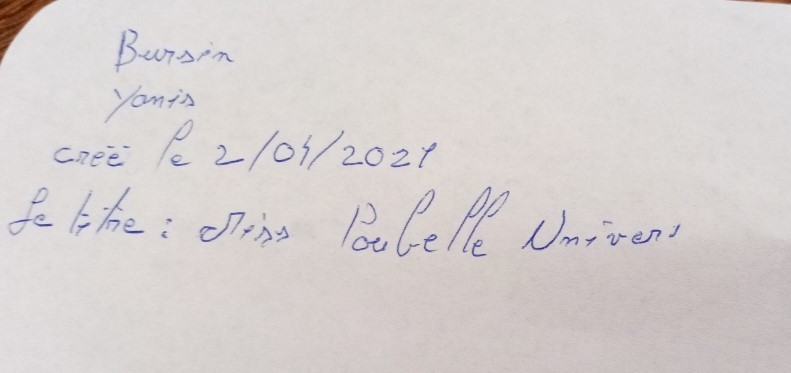 Bursin
Yanis
créé le 2/04/2021
Le titre : Miss Poubelle Univers